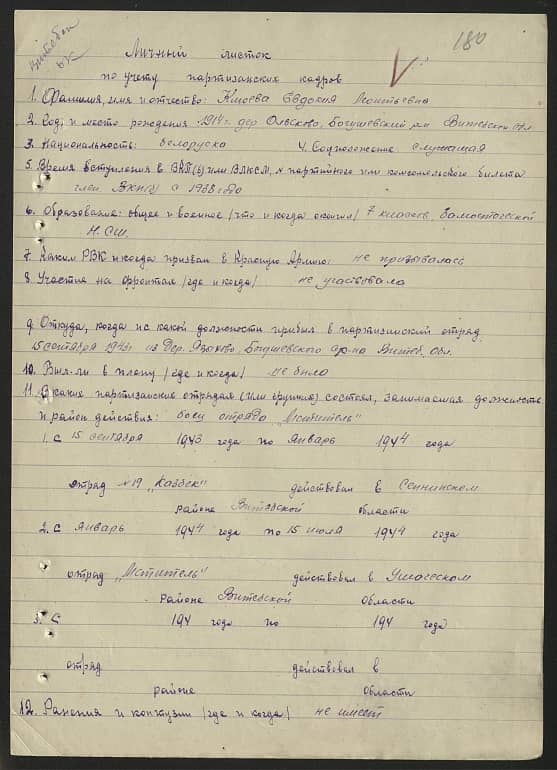 180
Личный листок
по учету партизанских кадров
1. Фамилия, имя и отчество: Евдокия Леонтьевна
2. Год и место рождения 1914 г. дер. Ольсково, Богушевский р-н Витебской обл.
3. Национальность: белоруска 4. Соцположение служащая
5. Время вступления в ВКП(б) или ВЛКСМ, № партийного или комсомольского билета
член ВКП(б) с 1938 года
6. Образование: общее и военное /что и когда окончил/ 7 классов,
Н.С.Ш.
7. Каким РВК и когда призван в Красную Армию: не призывалась
8. Участие на фронтах /где и когда/ не участвовала
9. Откуда, когда и с какой должности прибыл в партизанский отряд
15 сентября 1943 г. из дер. Язьково, Богушевского р-на Витеб. обл.
10. Был-ли в плену /где и когда/ не была
11. В каких партизанских отрядах (или группах) состоял, занимаемая должность
и район действия: боец отряда "Мститель"
1. С 15 сентября 1943 года по Январь 1944 года
отряд №19 "Казбек" действовал в Сеннинском
районе Витебской области
2. С Январь 1944 года по 15 июля 1944 года
отряд "Мститель" действовал в Ушачском
районе Витебской области
3. С 194 года по 194 года
отряд действовал в
районе области
12. Ранения и контузии /где и когда/ не имеет